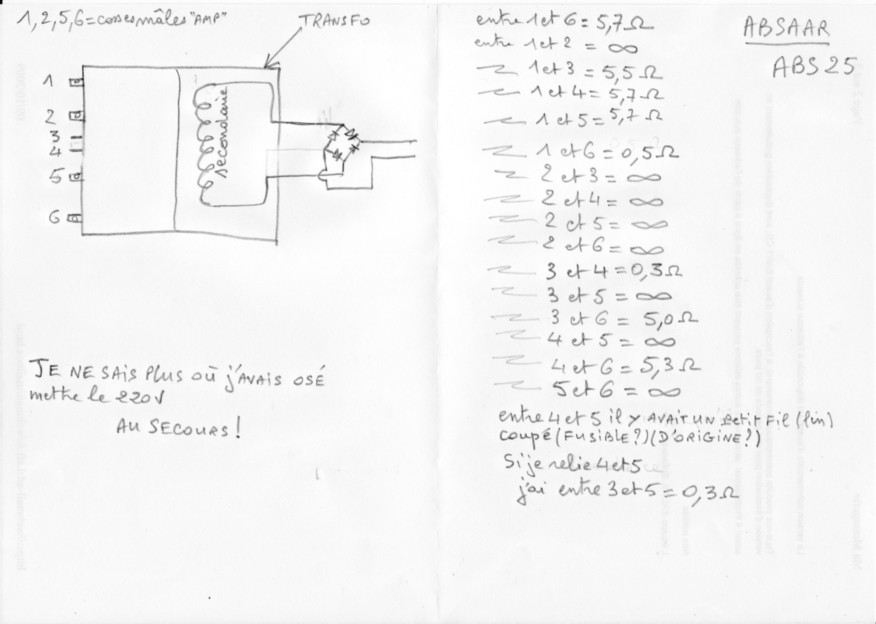 1, 2, 5, 6 = cosses mâles "AMP"
TRANSFO
1
2
3
4
5
6
secondaire
JE NE SAIS PLUS OÙ J'AVAIS OSÉ
mettre le 220V
AU SECOURS!
entre 1 et 6 = 5,7 Ω
entre 1 et 2 = ∞
1 et 3 = 5,5 Ω
1 et 4 = 5,7 Ω
1 et 5 = 5,7 Ω
1 et 6 = 0,5 Ω
2 et 3 = ∞
2 et 4 = ∞
2 et 5 = ∞
2 et 6 = ∞
3 et 4 = 0,3 Ω
3 et 5 = ∞
3 et 6 = 5,0 Ω
4 et 5 = ∞
4 et 6 = 5,3 Ω
5 et 6 = ∞
entre 4 et 5 il y AVAIT UN petit Fil (fin)
coupé (FUSIBLE?) (D'ORIGINE?)
Si je relie 4 et 5
j'ai entre 3 et 5 = 0,3 Ω
ABSAAR
ABS 25